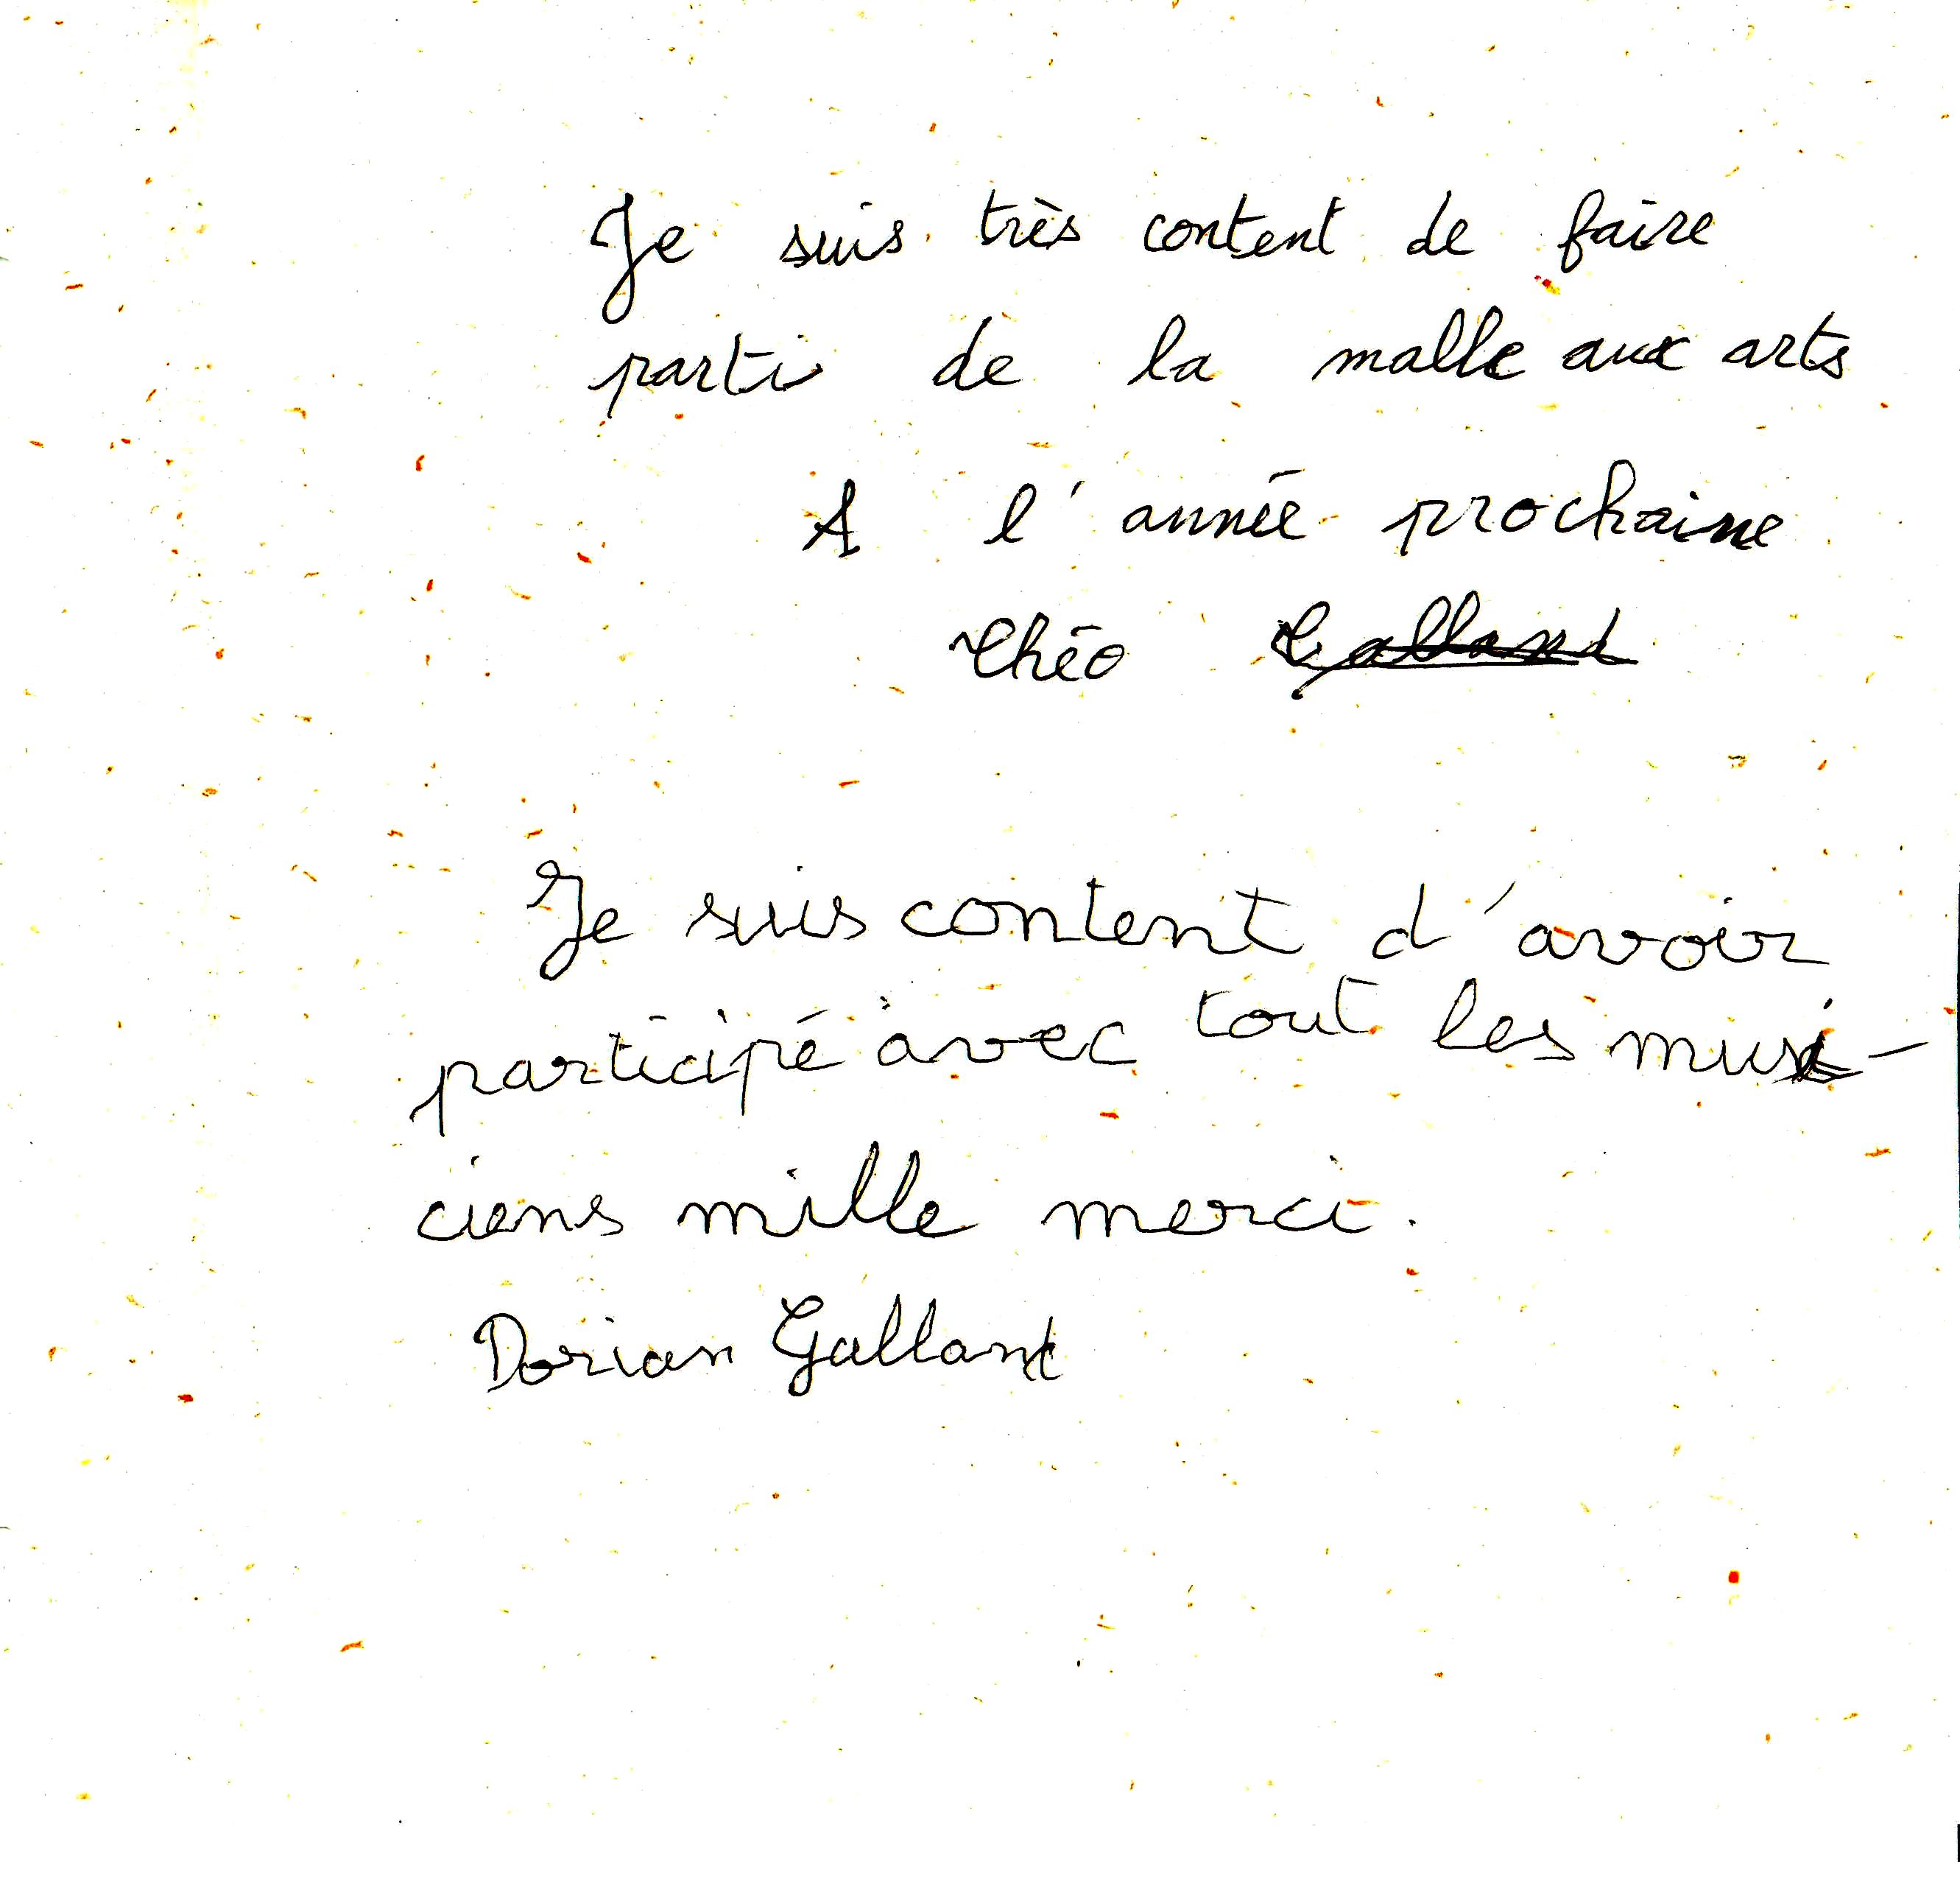 Je suis très content de faire
parti de la malle aux arts
A l'année prochaine
Théo Galland
Je suis content d'avoir
participé avec tout les musi-
ciens mille merci.
Dorian Galland